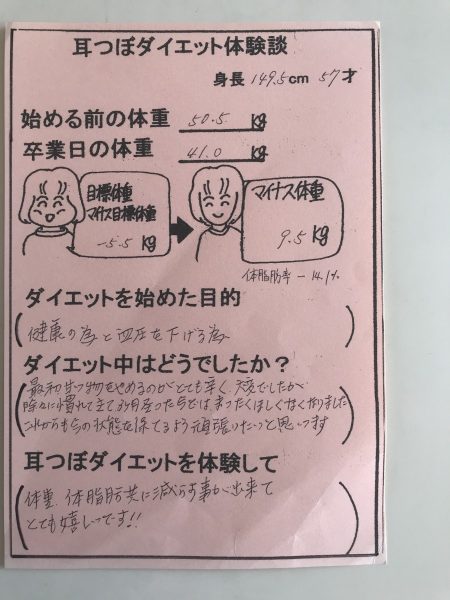 耳つぼダイエット体験談
身長 149.5cm 57才
始める前の体重 50.5 kg
卒業日の体重 41.0 kg
目標体重
マイナス目標体重
-5.5 kg
マイナス体重
9.5 kg
体脂肪率 -14.1%
ダイエットを始めた目的
健康の為と血圧を下げる為
ダイエット中はどうでしたか？
最初甘い物をやめるのがとても辛く、大変でしたが
除々に慣れてきて3ヶ月たった今では、まったくほしくなくなりました
これからも今の状態を保てるよう頑張りたいと思います
耳つぼダイエットを体験して
体重、体脂肪共に減らす事が出来て
とても嬉しいです!!